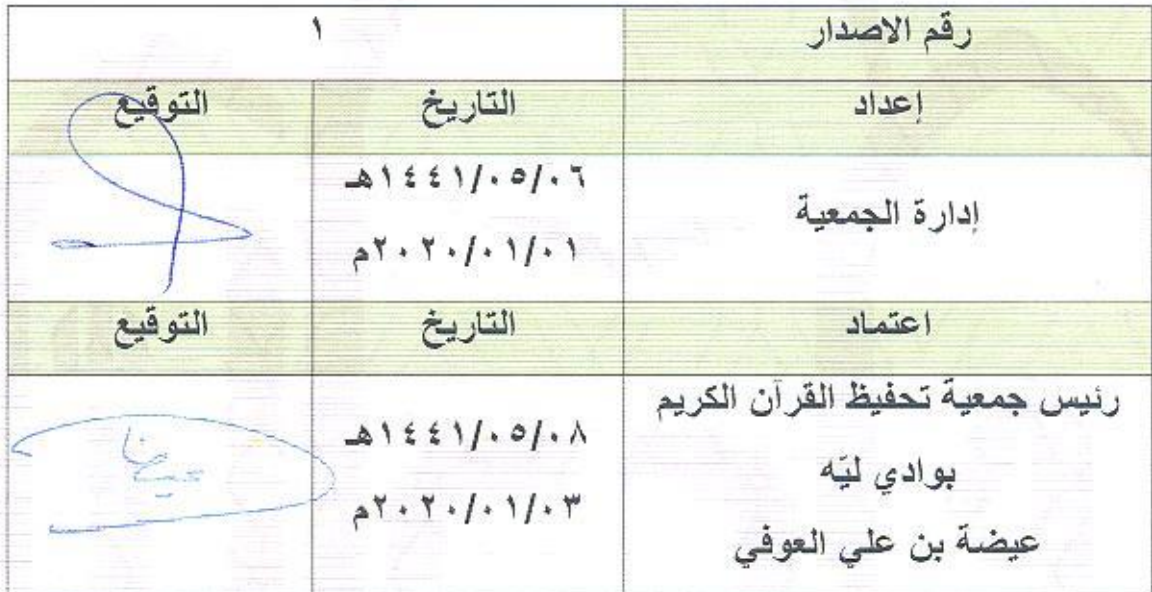 رقم الاصدار ١
إعداد التاريخ التوقيع
إدارة الجمعية
١٤٤١/٠٥/٠٦هـ
٢٠٢٠/٠١/٠١م
اعتماد التاريخ التوقيع
رئيس جمعية تحفيظ القرآن الكريم
بوادي ليّه
عيضة بن علي العوفي
١٤٤١/٠٥/٠٨هـ
٢٠٢٠/٠١/٠٣م